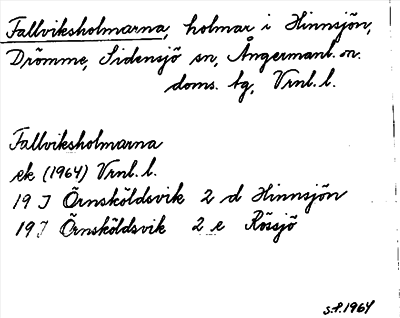 Fallviksholmarna, holmar i Hinnsjön,
Drömme, Sidensjö sn, Ångermanl. n.
doms. tg, Vrnl. l.
Fallviksholmarna
ek (1964) Vrnl. l.
19 J Örnsköldsvik 2 d Hinnsjön
19 J Örnsköldsvik 2 e Rössjö
1964